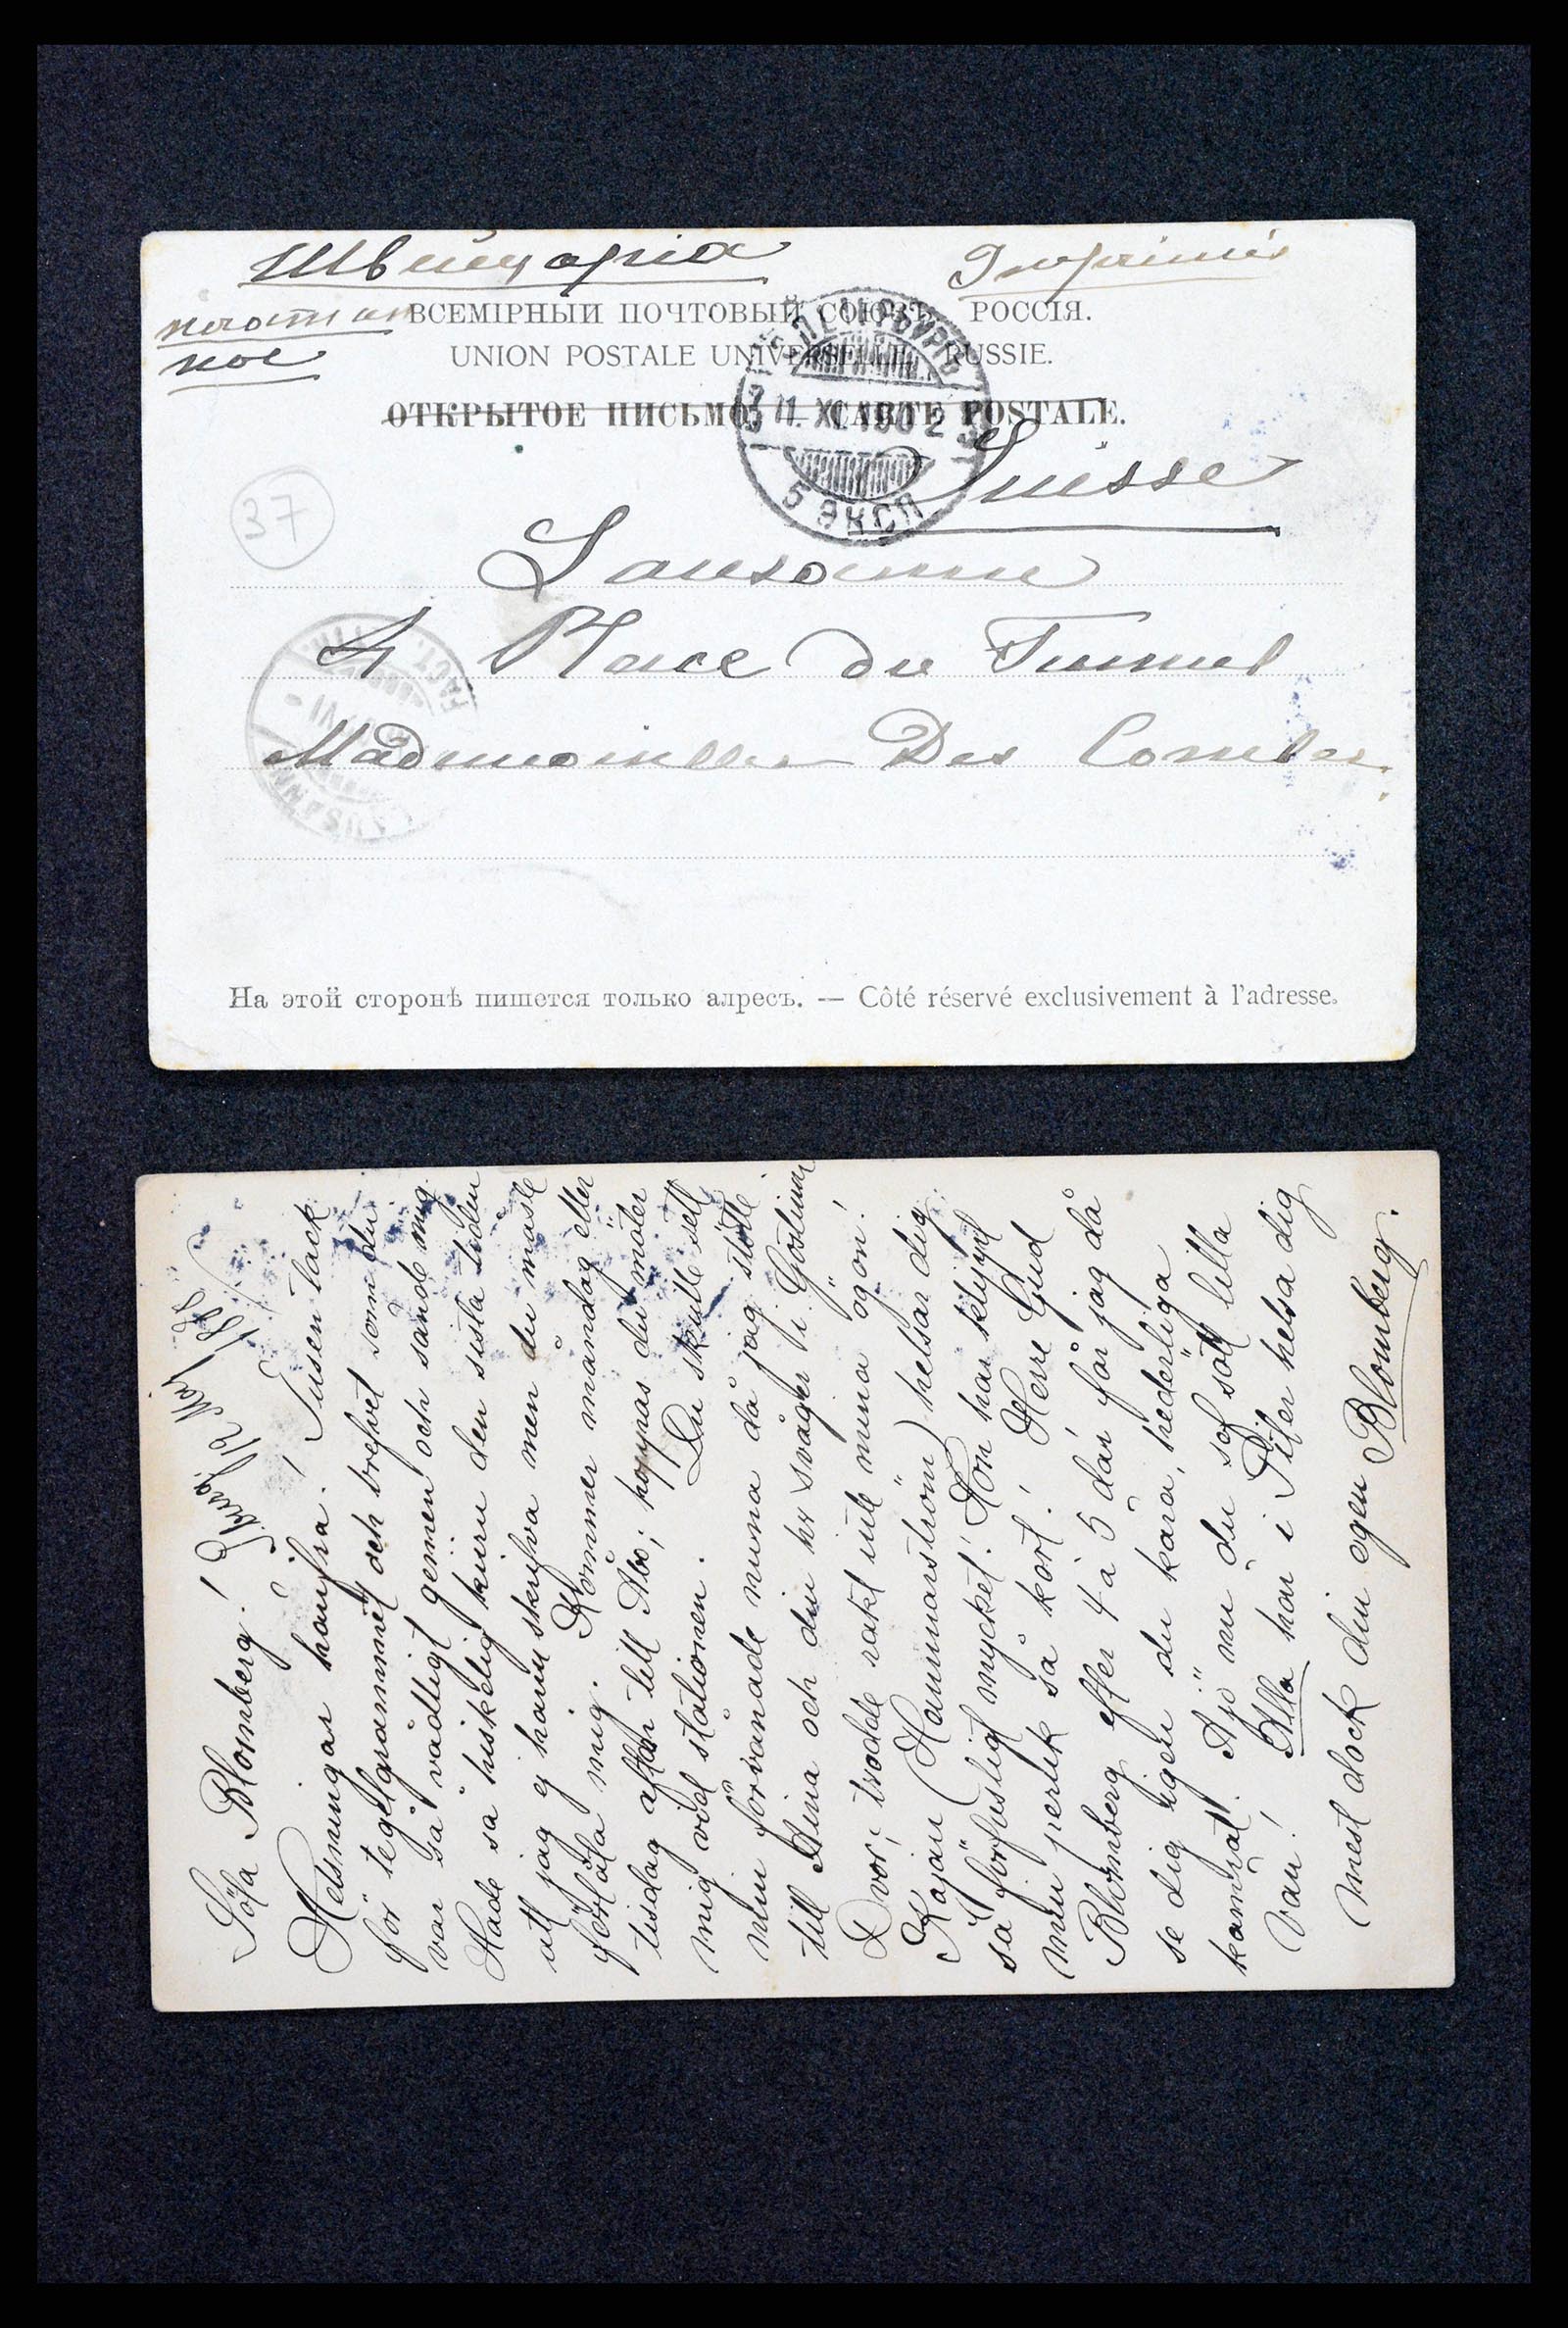 Швейцарія
Imprimés
ВСЕМІРНЫЙ ПОЧТОВЫЙ СОЮЗЪ. РОССІЯ.
UNION POSTALE UNIVERSELLE. RUSSIE.
ОТКРЫТОЕ ПИСЬМО. — CARTE POSTALE.
11. XI. 1902
5 ЭКСП
Suisse
37
Lausanne
4 Place du Tunnel
Mademoiselle Des Combes.
На этой сторонѣ пишется только адресъ. — Côté réservé exclusivement à l'adresse.
Söta Blomberg!
Helsningar hemifra! Tusen tack
för telegrammet och brefvet som du
var så vådligt gemen och sände mig.
Hade så hiskelig den sista tiden
att jag ej hann skrifva men du måste
förlåta mig. Kommer måndag eller
tisdag afton till Åbo; hoppas du möter
mig vid stationen. Du skulle sett
min förvånade då jag stötte
till Aina och din hr svåger i Gostinnie
Dvor; trodde rakt inte mina ögon!
Kajan (Hammarström) helsar dig
så förfusligt mycket! Hon har
min så kort! Herre Gud
Blomberg efter 4 à 5 dar får jag då
se dig igen du kära, hederliga
kamrat! Ajö nu du söt lilla
vän! Alla här i Piter helsa dig
mest dock din egen Blomberg.